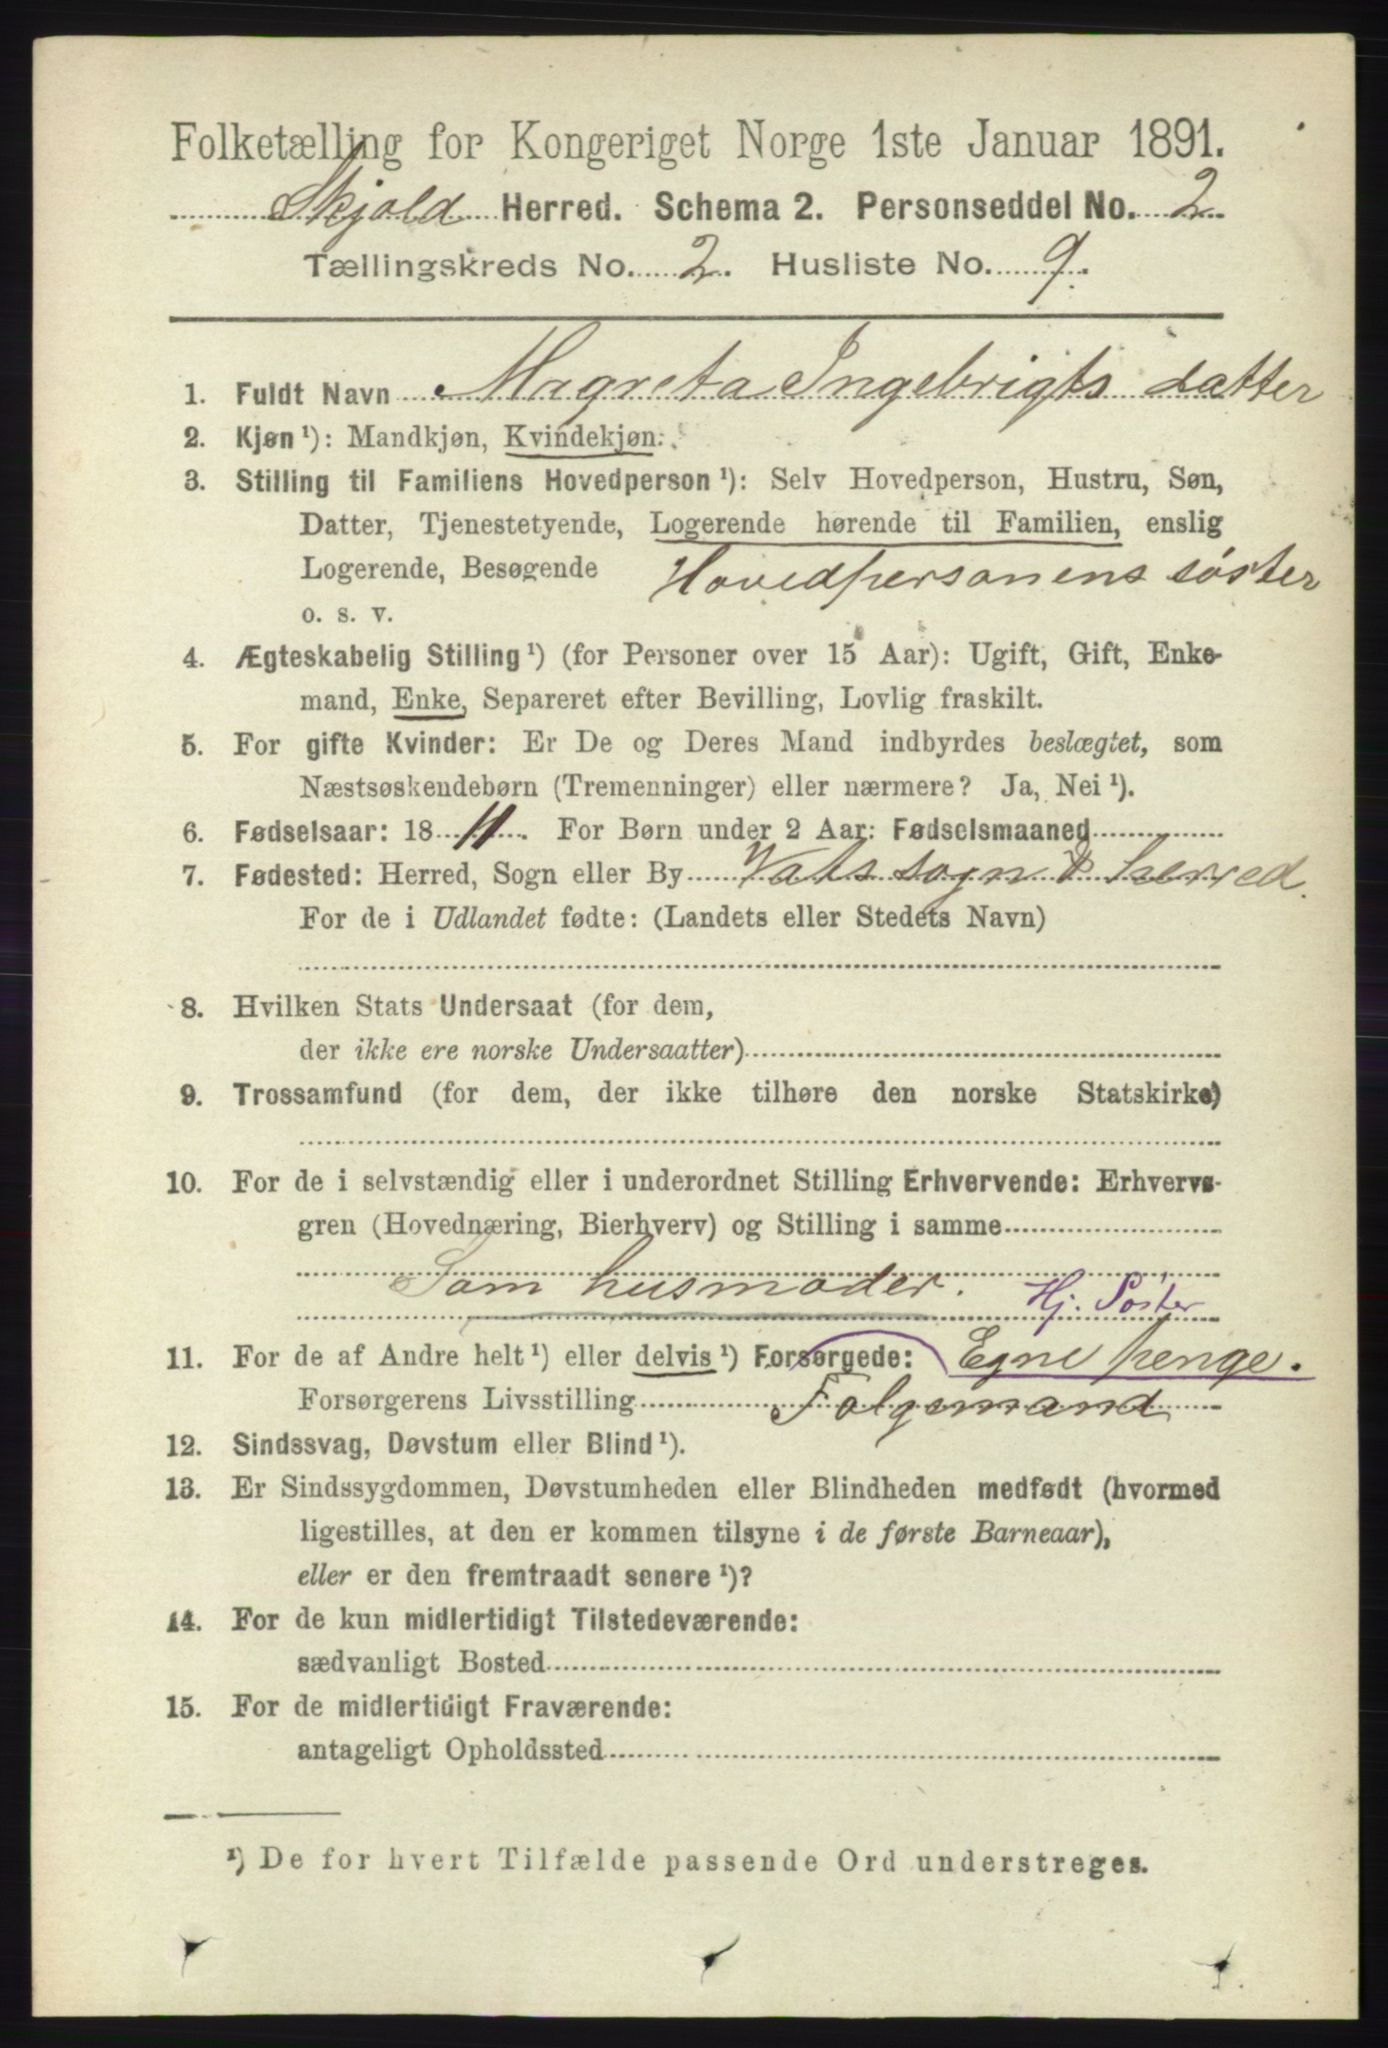 Folketælling for Kongeriget Norge 1ste Januar 1891.
Skjold Herred. Schema 2. Personseddel No. 2.
Tællingskreds No. 2. Husliste No. 9.
1. Fuldt Navn Magreta Ingebrigts datter
2. Kjøn ¹): Mandkjøn, Kvindekjøn.
3. Stilling til Familiens Hovedperson ¹): Selv Hovedperson, Hustru, Søn,
Datter, Tjenestetyende, Logerende hørende til Familien, enslig
Logerende, Besøgende Hovedpersonens søster
o. s. v.
4. Ægteskabelig Stilling ¹) (for Personer over 15 Aar): Ugift, Gift, Enke-
mand, Enke, Separeret efter Bevilling, Lovlig fraskilt.
5. For gifte Kvinder: Er De og Deres Mand indbyrdes beslægtet, som
Næstsøskendebørn (Tremenninger) eller nærmere? Ja, Nei ¹).
6. Fødselsaar: 18 11. For Børn under 2 Aar: Fødselsmaaned
7. Fødested: Herred, Sogn eller By Vats sogn & herred.
For de i Udlandet fødte: (Landets eller Stedets Navn)
8. Hvilken Stats Undersaat (for dem,
der ikke ere norske Undersaatter)
9. Trossamfund (for dem, der ikke tilhøre den norske Statskirke)
10. For de i selvstændig eller i underordnet Stilling Erhvervende: Erhvervs-
gren (Hovednæring, Bierhverv) og Stilling i samme
Som husmoder. Hj. Søster
11. For de af Andre helt ¹) eller delvis ¹) Forsørgede: Egne penge.
Forsørgerens Livsstilling Følgemand
12. Sindssvag, Døvstum eller Blind ¹).
13. Er Sindssygdommen, Døvstumheden eller Blindheden medfødt (hvormed
ligestilles, at den er kommen tilsyne i de første Barneaar),
eller er den fremtraadt senere ¹)?
14. For de kun midlertidigt Tilstedeværende:
sædvanligt Bosted
15. For de midlertidigt Fraværende:
antageligt Opholdssted
¹) De for hvert Tilfælde passende Ord understreges.